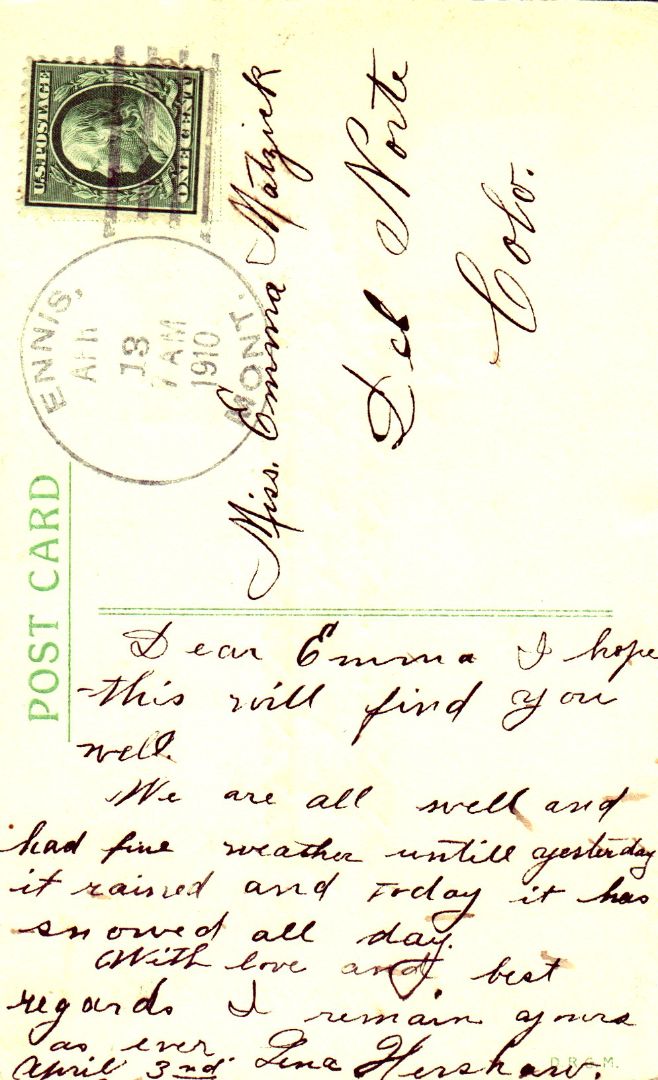 U.S. POSTAGE
ONE CENT
ENNIS,
MONT.
APR
13
7 AM
1910
POST CARD
Miss. Emma Matzick
Del Norte
Colo.
Dear Emma I hope
this will find you
well.
We are all well and
had fine weather untill yesterday
it rained and today it has
snowed all day.
With love and best
regards I remain yours
as ever
April 3nd Lena Hershaw.
D.R.G.M.